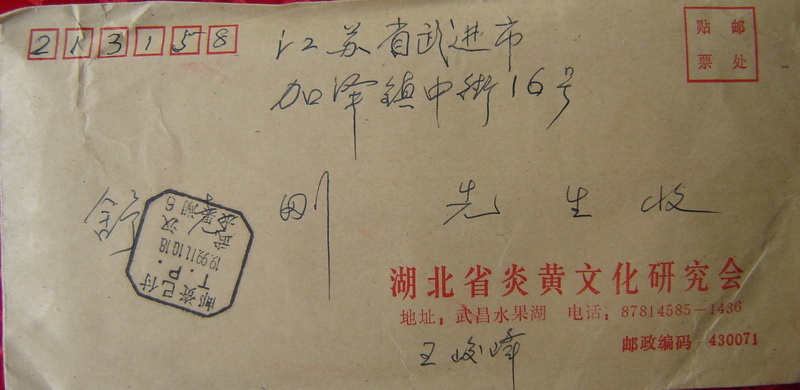 213158
江苏省武进市
加泽镇中街16号
贴 邮
票 处
舒 刚 先生收
武汉
6
1999.11.10.18
T.P.
邮资已付
湖北省炎黄文化研究会
地址：武昌水果湖 电话：87814585－1436
邮政编码 430071
王峻峰